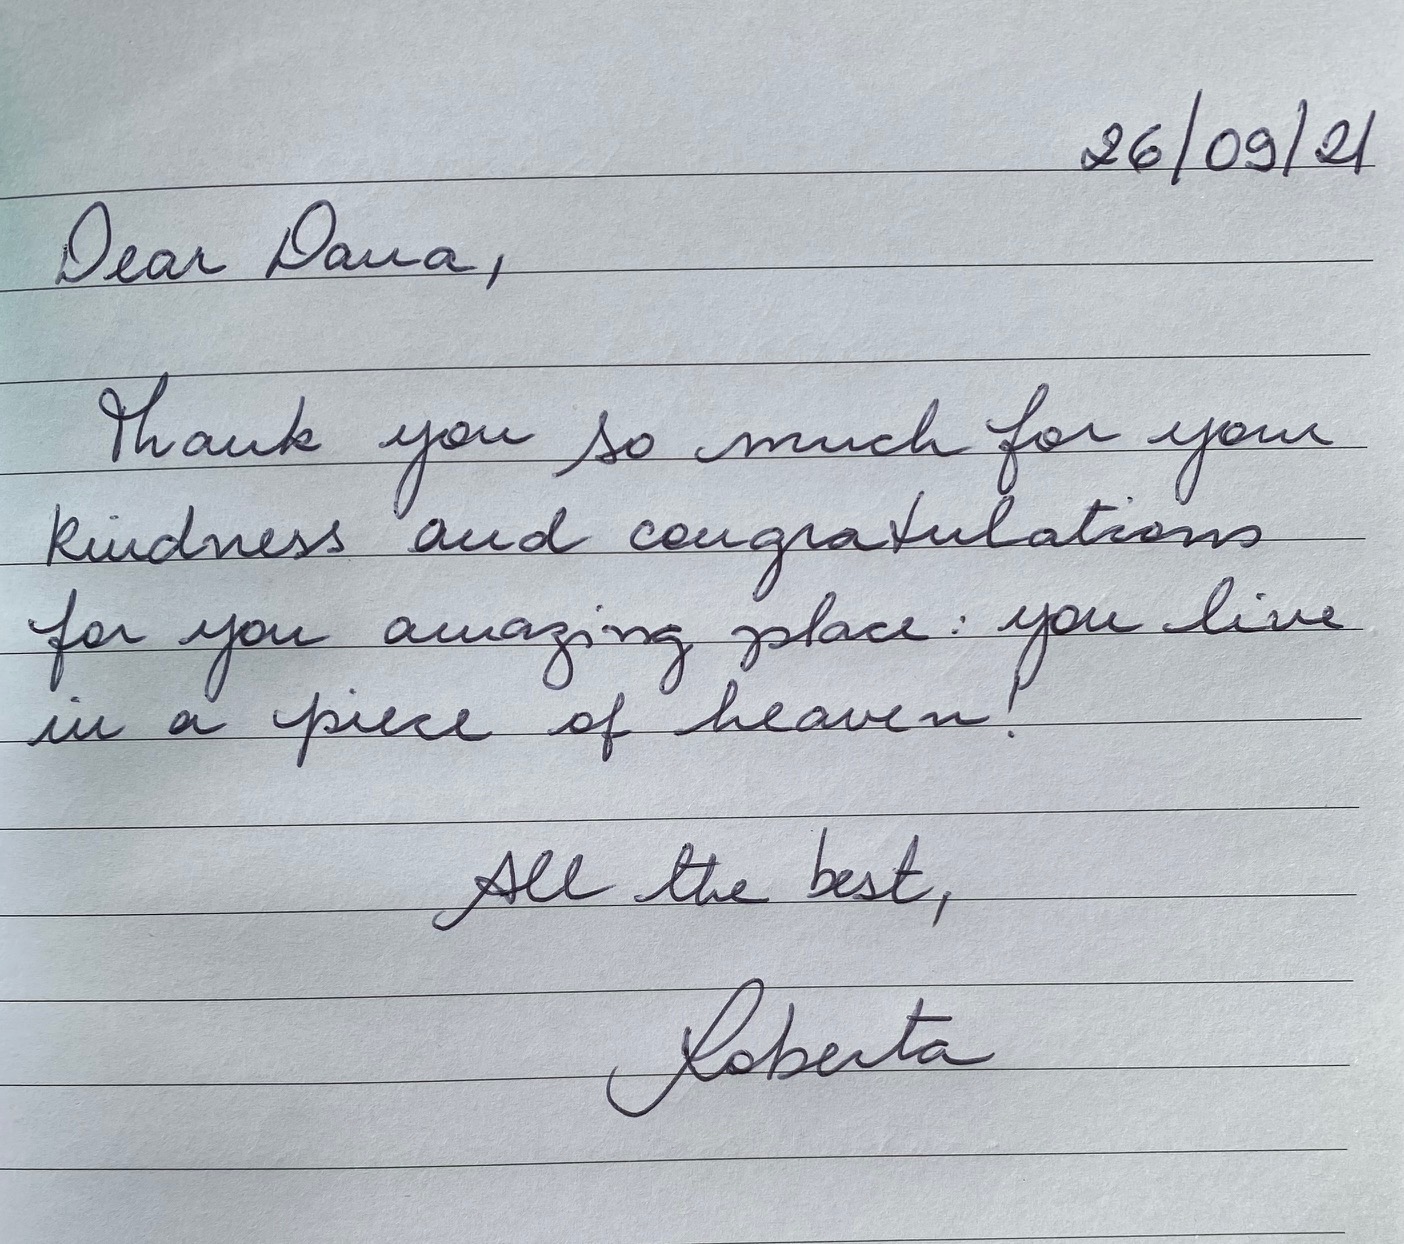 26/09/21
Dear Dana,
Thank you so much for your
kindness and congratulations
for you amazing place: you live
in a piece of heaven!
All the best,
Roberta